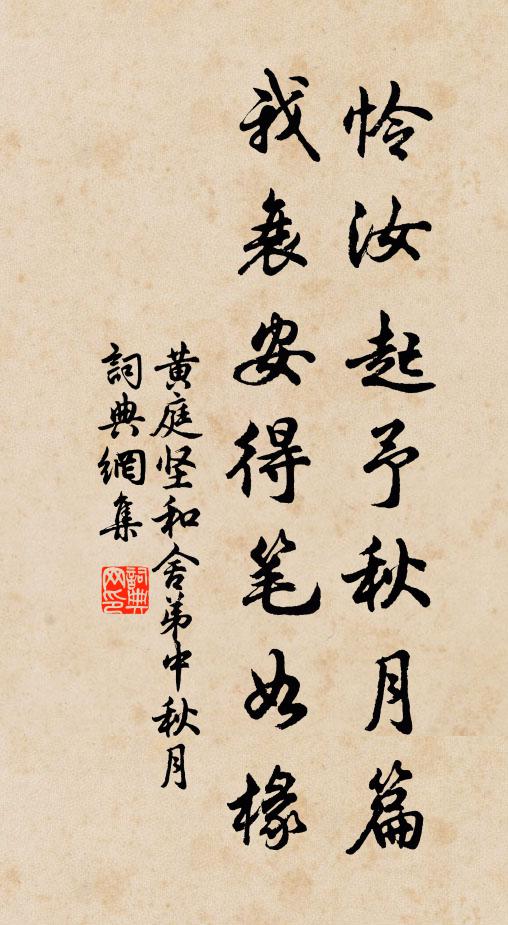 怜汝起予秋月篇
我衰安得笔如椽
黄庭坚和舍弟中秋月
詞典網集
詞典
网印